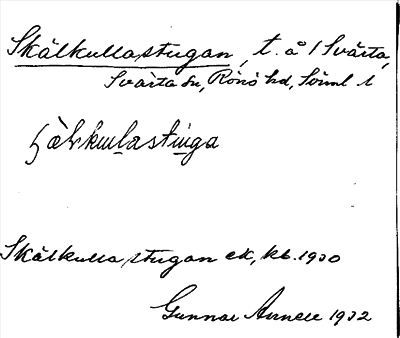 Skälkullastugan, t. å 1 Svärta,
Svärta sn, Rönö hd, Söml 1
Skälkulla stugan ek, kb. 1930
Gunnar Arnell 1932